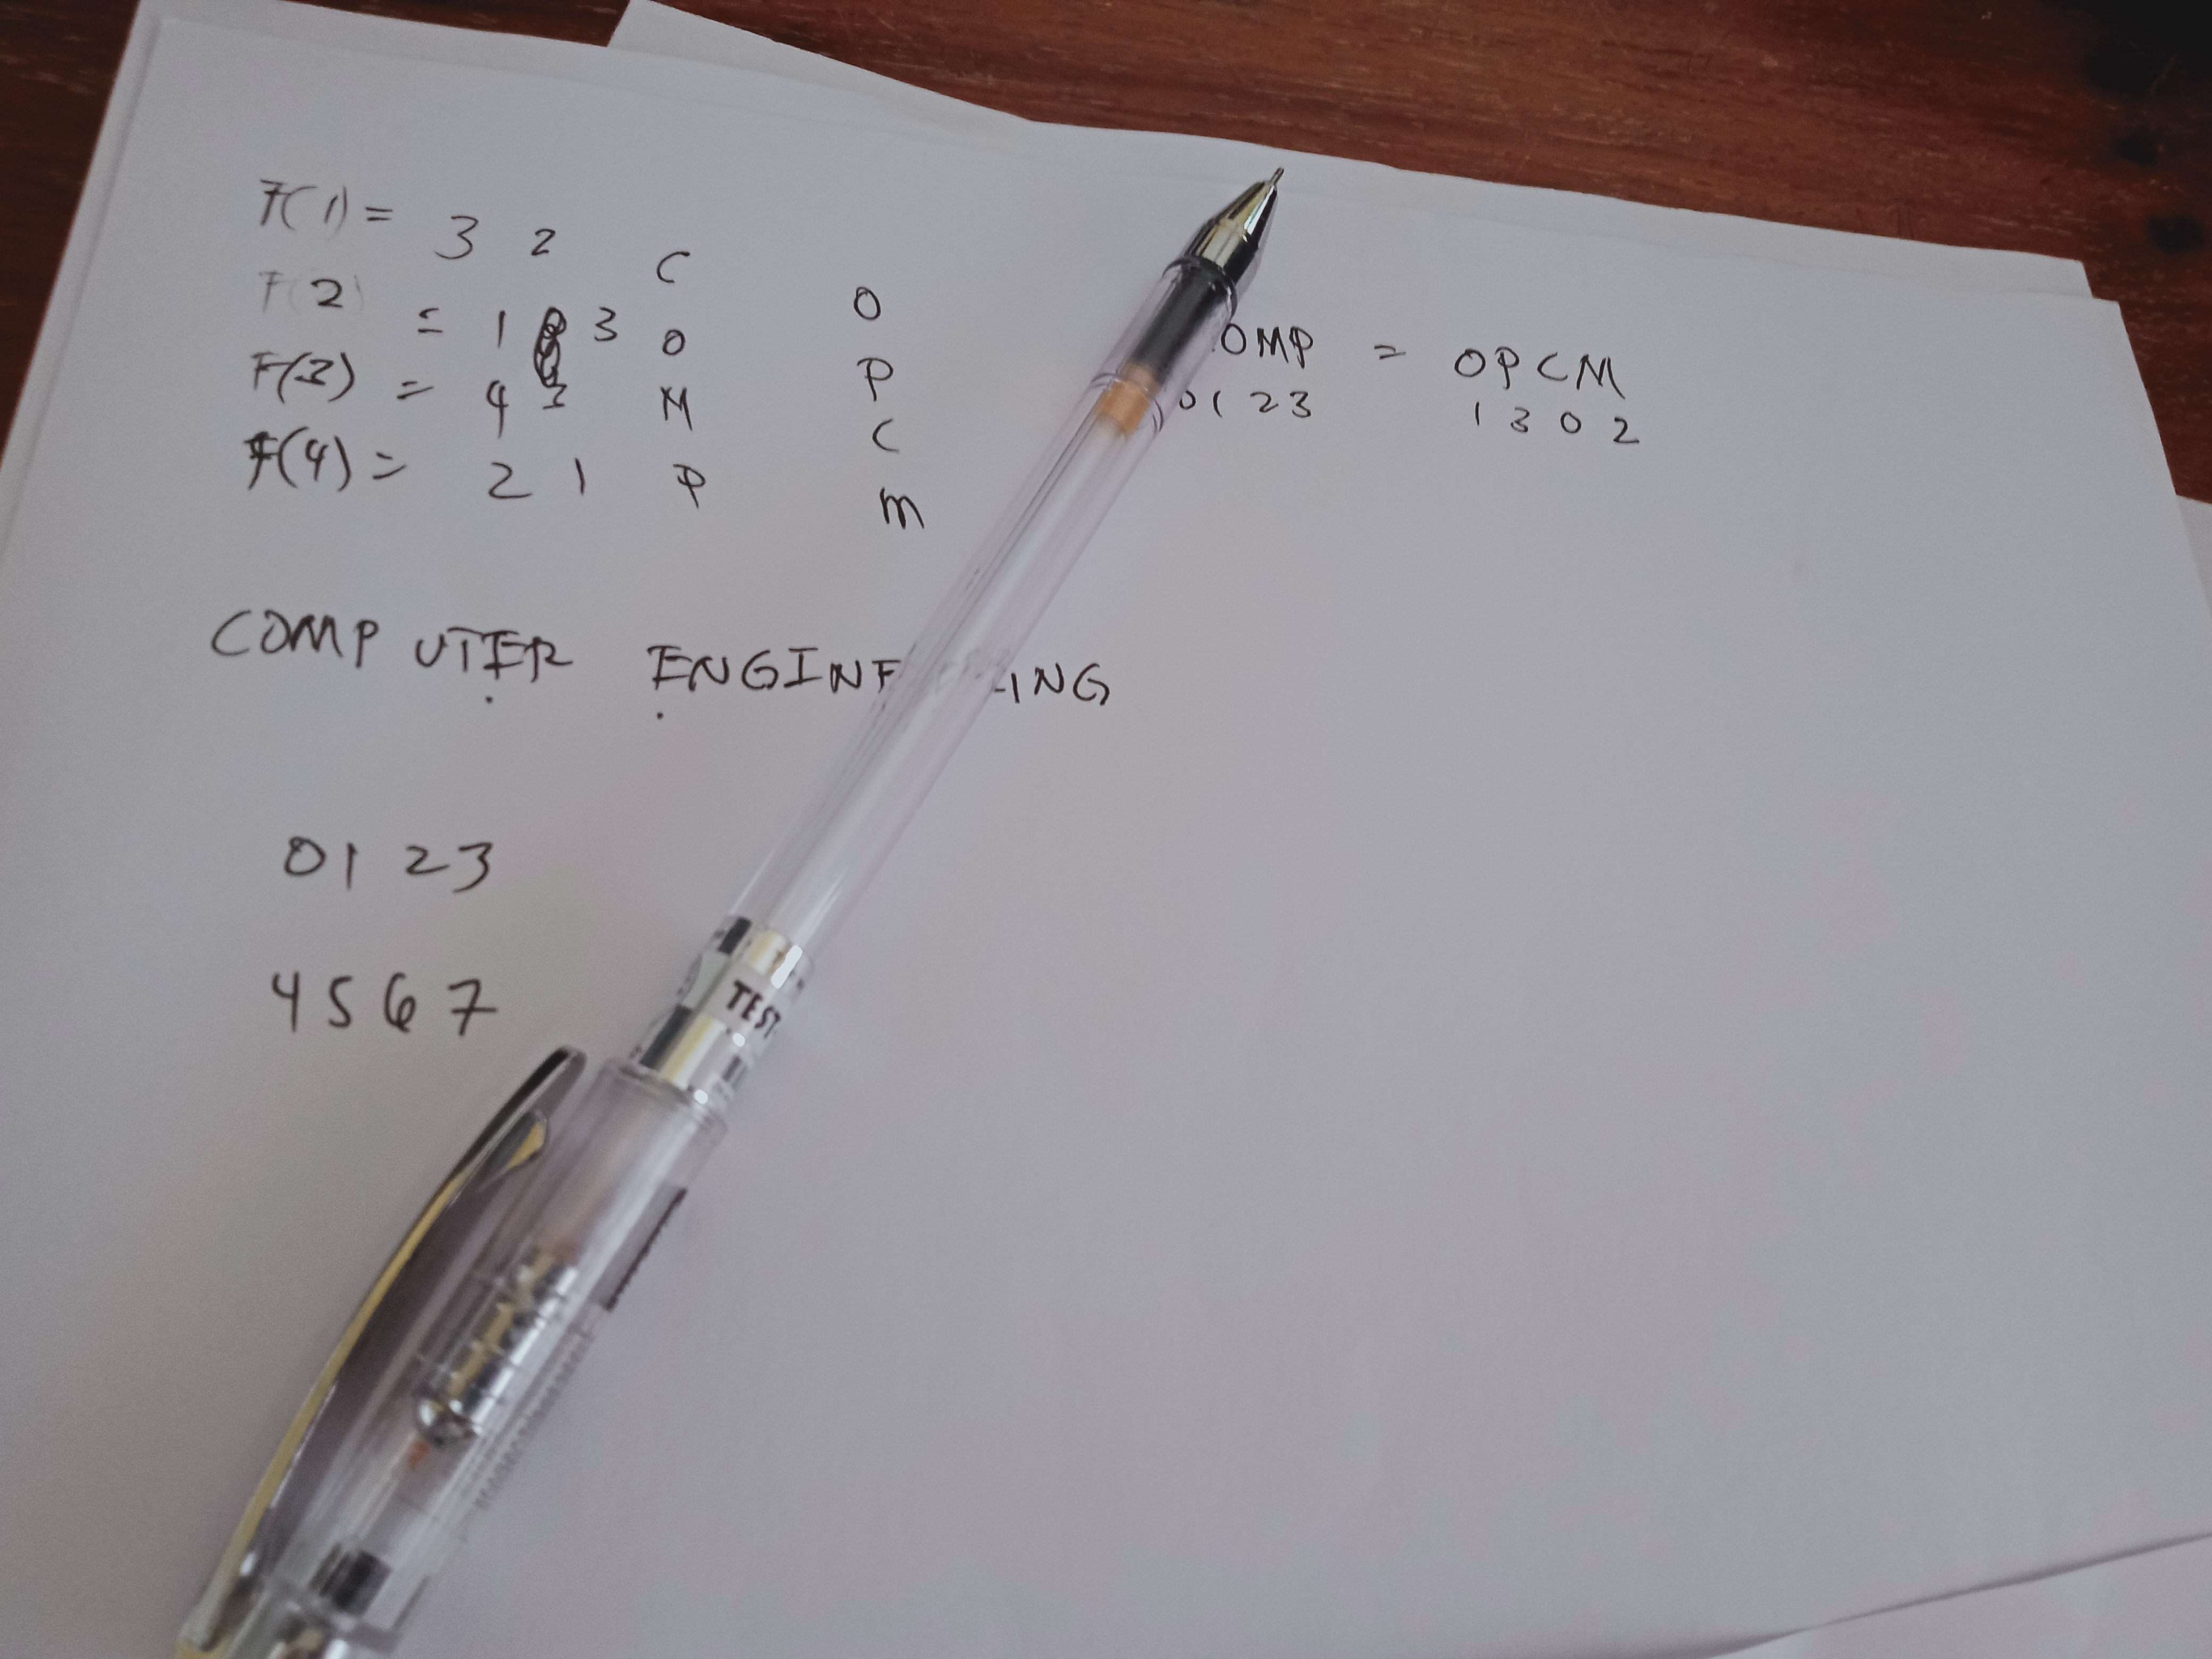 F(1) = 3 2 C O
F(2) = 1 3 O P
F(3) = 4 3 M C
F(4) = 2 1 P M
OMP = OPCM
0123 1302
COMPUTER ENGINE ING
0123
4567
TEST